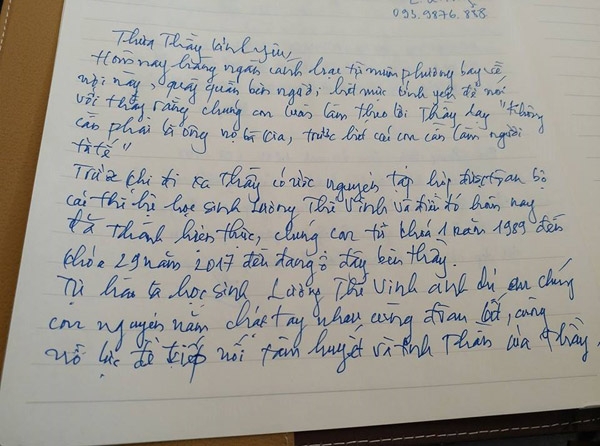 093.9876.888
Thưa Thầy kính yêu,
Hôm nay hàng ngàn cánh hạc từ muôn phương bay về
nơi này, quây quần bên người, hết mực kính yêu để nói
với thầy rằng chúng con luôn làm theo lời Thầy dạy "không
cần phải là ông nọ bà kia, trước hết các con cần làm người
tử tế"
Trước khi đi xa Thầy có ước nguyện tập hợp được toàn bộ
các thế hệ học sinh Lương Thế Vinh và điều đó hôm nay
đã thành hiện thực, chúng con từ khoá 1 năm 1989 đến
khóa 29 năm 2017 đều đang ở đây bên thầy.
Tự hào là học sinh Lương Thế Vinh anh chị em chúng
con nguyện nắm chặt tay nhau cùng đoàn kết, cùng
nỗ lực để tiếp nối tâm huyết và tinh thần của thầy.